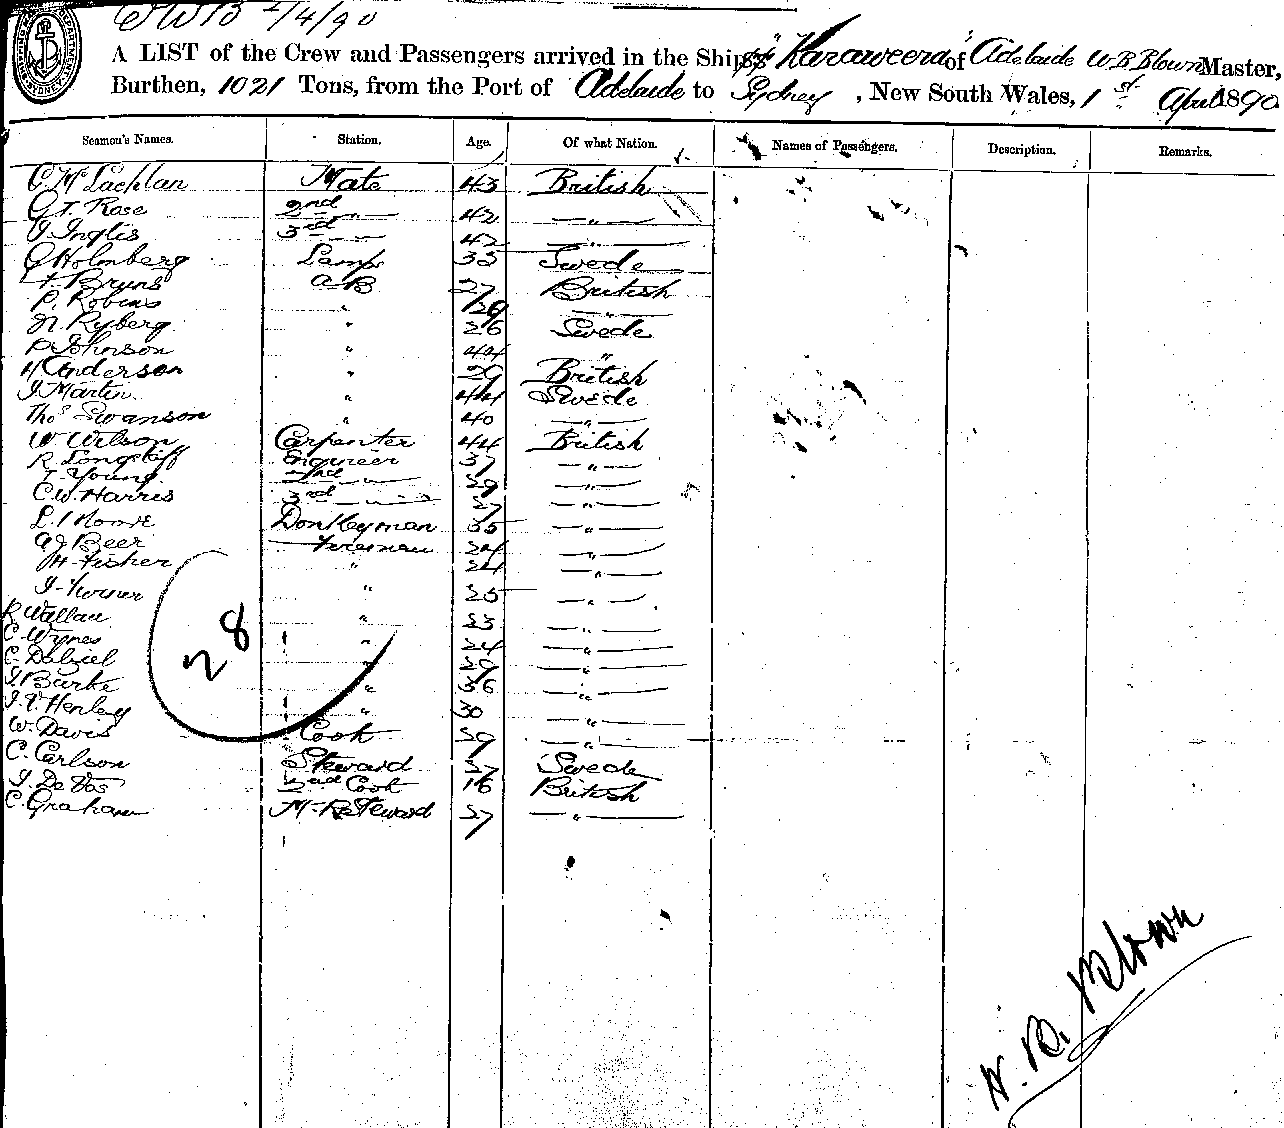 2/4/90
A LIST of the Crew and Passengers arrived in the Ship SS "Karaweera" of Adelaide W B Blown Master,
Burthen, 1021 Tons, from the Port of Adelaide to Sydney, New South Wales, 1st April 1890
Seamen's Names. Station. Age. Of what Nation. Names of Passengers. Description. Remarks.
C McLachlan Mate 43 British
G T. Rose 2nd " 42 — " —
J. Inglis 3rd — 42 — " —
G Holmberg Lamps 35 Swede
F. Bruns A B 27 British
P. Robins " 29 "
N. Ryberg " 26 Swede
P Johnson " 44 "
H Anderson " 29 British
J Martin " 44 Swede
Thos Swanson " 40 — " —
W Wilson Carpenter 44 British
R Longstaff Engineer 37 — " —
T. Young 2nd — " — 29 — " —
C.W. Harris 3rd — " — 27 — " —
Donkeyman 35 — " —
A J Beer Fireman 24 — " —
H Fisher " 24 — " —
J. Turner " 25 — " —
R Wallace " 23 — " —
C. Wynes " 24 — " —
C. Dalziel " 29 — " —
J. Burke " 36 — " —
J. V. Henley " 30 — " —
W. Davis Cook 39 — " —
C. Carlson Steward 37 Swede
J. De Vos 2nd Cook 16 British
C. Graham M. R. Steward 37 — " —
28
W. B. Blown